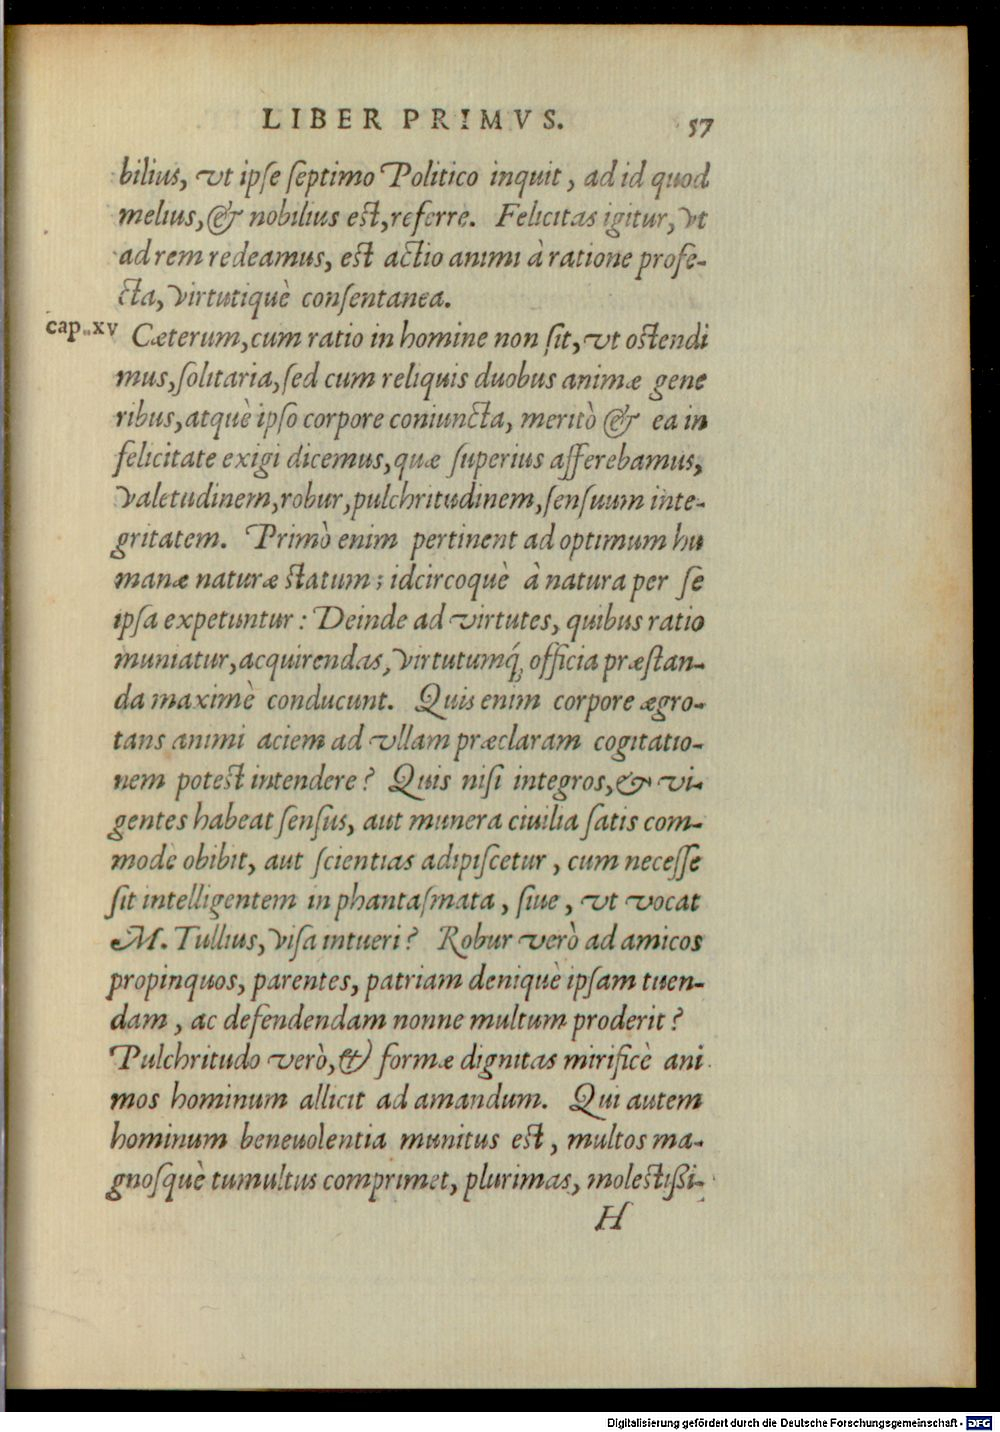 LIBER PRIMVS. 57
bilius, vt ipse septimo Politico inquit, ad id quod
melius, & nobilius est, referre. Felicitas igitur, vt
ad rem redeamus, est actio animi à ratione profe-
cta, virtutiquè consentanea.
cap. xv Cæterum, cum ratio in homine non sit, vt ostendi
mus, solitaria, sed cum reliquis duobus animæ gene
ribus, atquè ipso corpore coniuncta, meritò & ea in
felicitate exigi dicemus, quæ superius afferebamus,
valetudinem, robur, pulchritudinem, sensuum inte-
gritatem. Primò enim pertinent ad optimum hu
manæ naturæ statum; idcircoquè à natura per se
ipsa expetuntur: Deinde ad virtutes, quibus ratio
muniatur, acquirendas, virtutumq́; officia præstan-
da maximè conducunt. Quis enim corpore ægro-
tans animi aciem ad vllam præclaram cogitatio-
nem potest intendere? Quis nisi integros, & vi-
gentes habeat sensus, aut munera ciuilia satis com-
mode obibit, aut scientias adipiscetur, cum necesse
sit intelligentem in phantasmata, siue, vt vocat
M. Tullius, visa intueri? Robur verò ad amicos
propinquos, parentes, patriam deniquè ipsam tuen-
dam, ac defendendam nonne multum proderit?
Pulchritudo verò, & formæ dignitas mirificè ani
mos hominum allicit ad amandum. Qui autem
hominum beneuolentia munitus est, multos ma-
gnosquè tumultus comprimet, plurimas, molestißi-
H
Digitalisierung gefördert durch die Deutsche Forschungsgemeinschaft - DFG